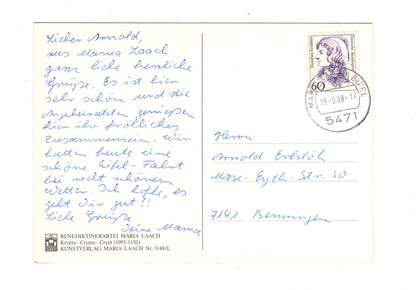 Lieber Arnold,
aus Maria Laach
ganz liebe herzliche
Grüße. Es ist hier
sehr schön und die
Angeheirateten genießen
hier ihr fröhliches
Zusammensein. Wir
hatten heute eine
schöne Eifel-Fahrt
bei recht schönem
Wetter. Ich hoffe, es
geht Dir gut!!
Liebe Grüße
Deine Mama
BENEDIKTINERABTEI MARIA LAACH
Krypta - Crypte - Crypt (1093-1130)
KUNSTVERLAG MARIA LAACH Nr. 5148/L
60
5471
Herrn
Arnold
Max-Eyth-Str. 30
7141 Benningen